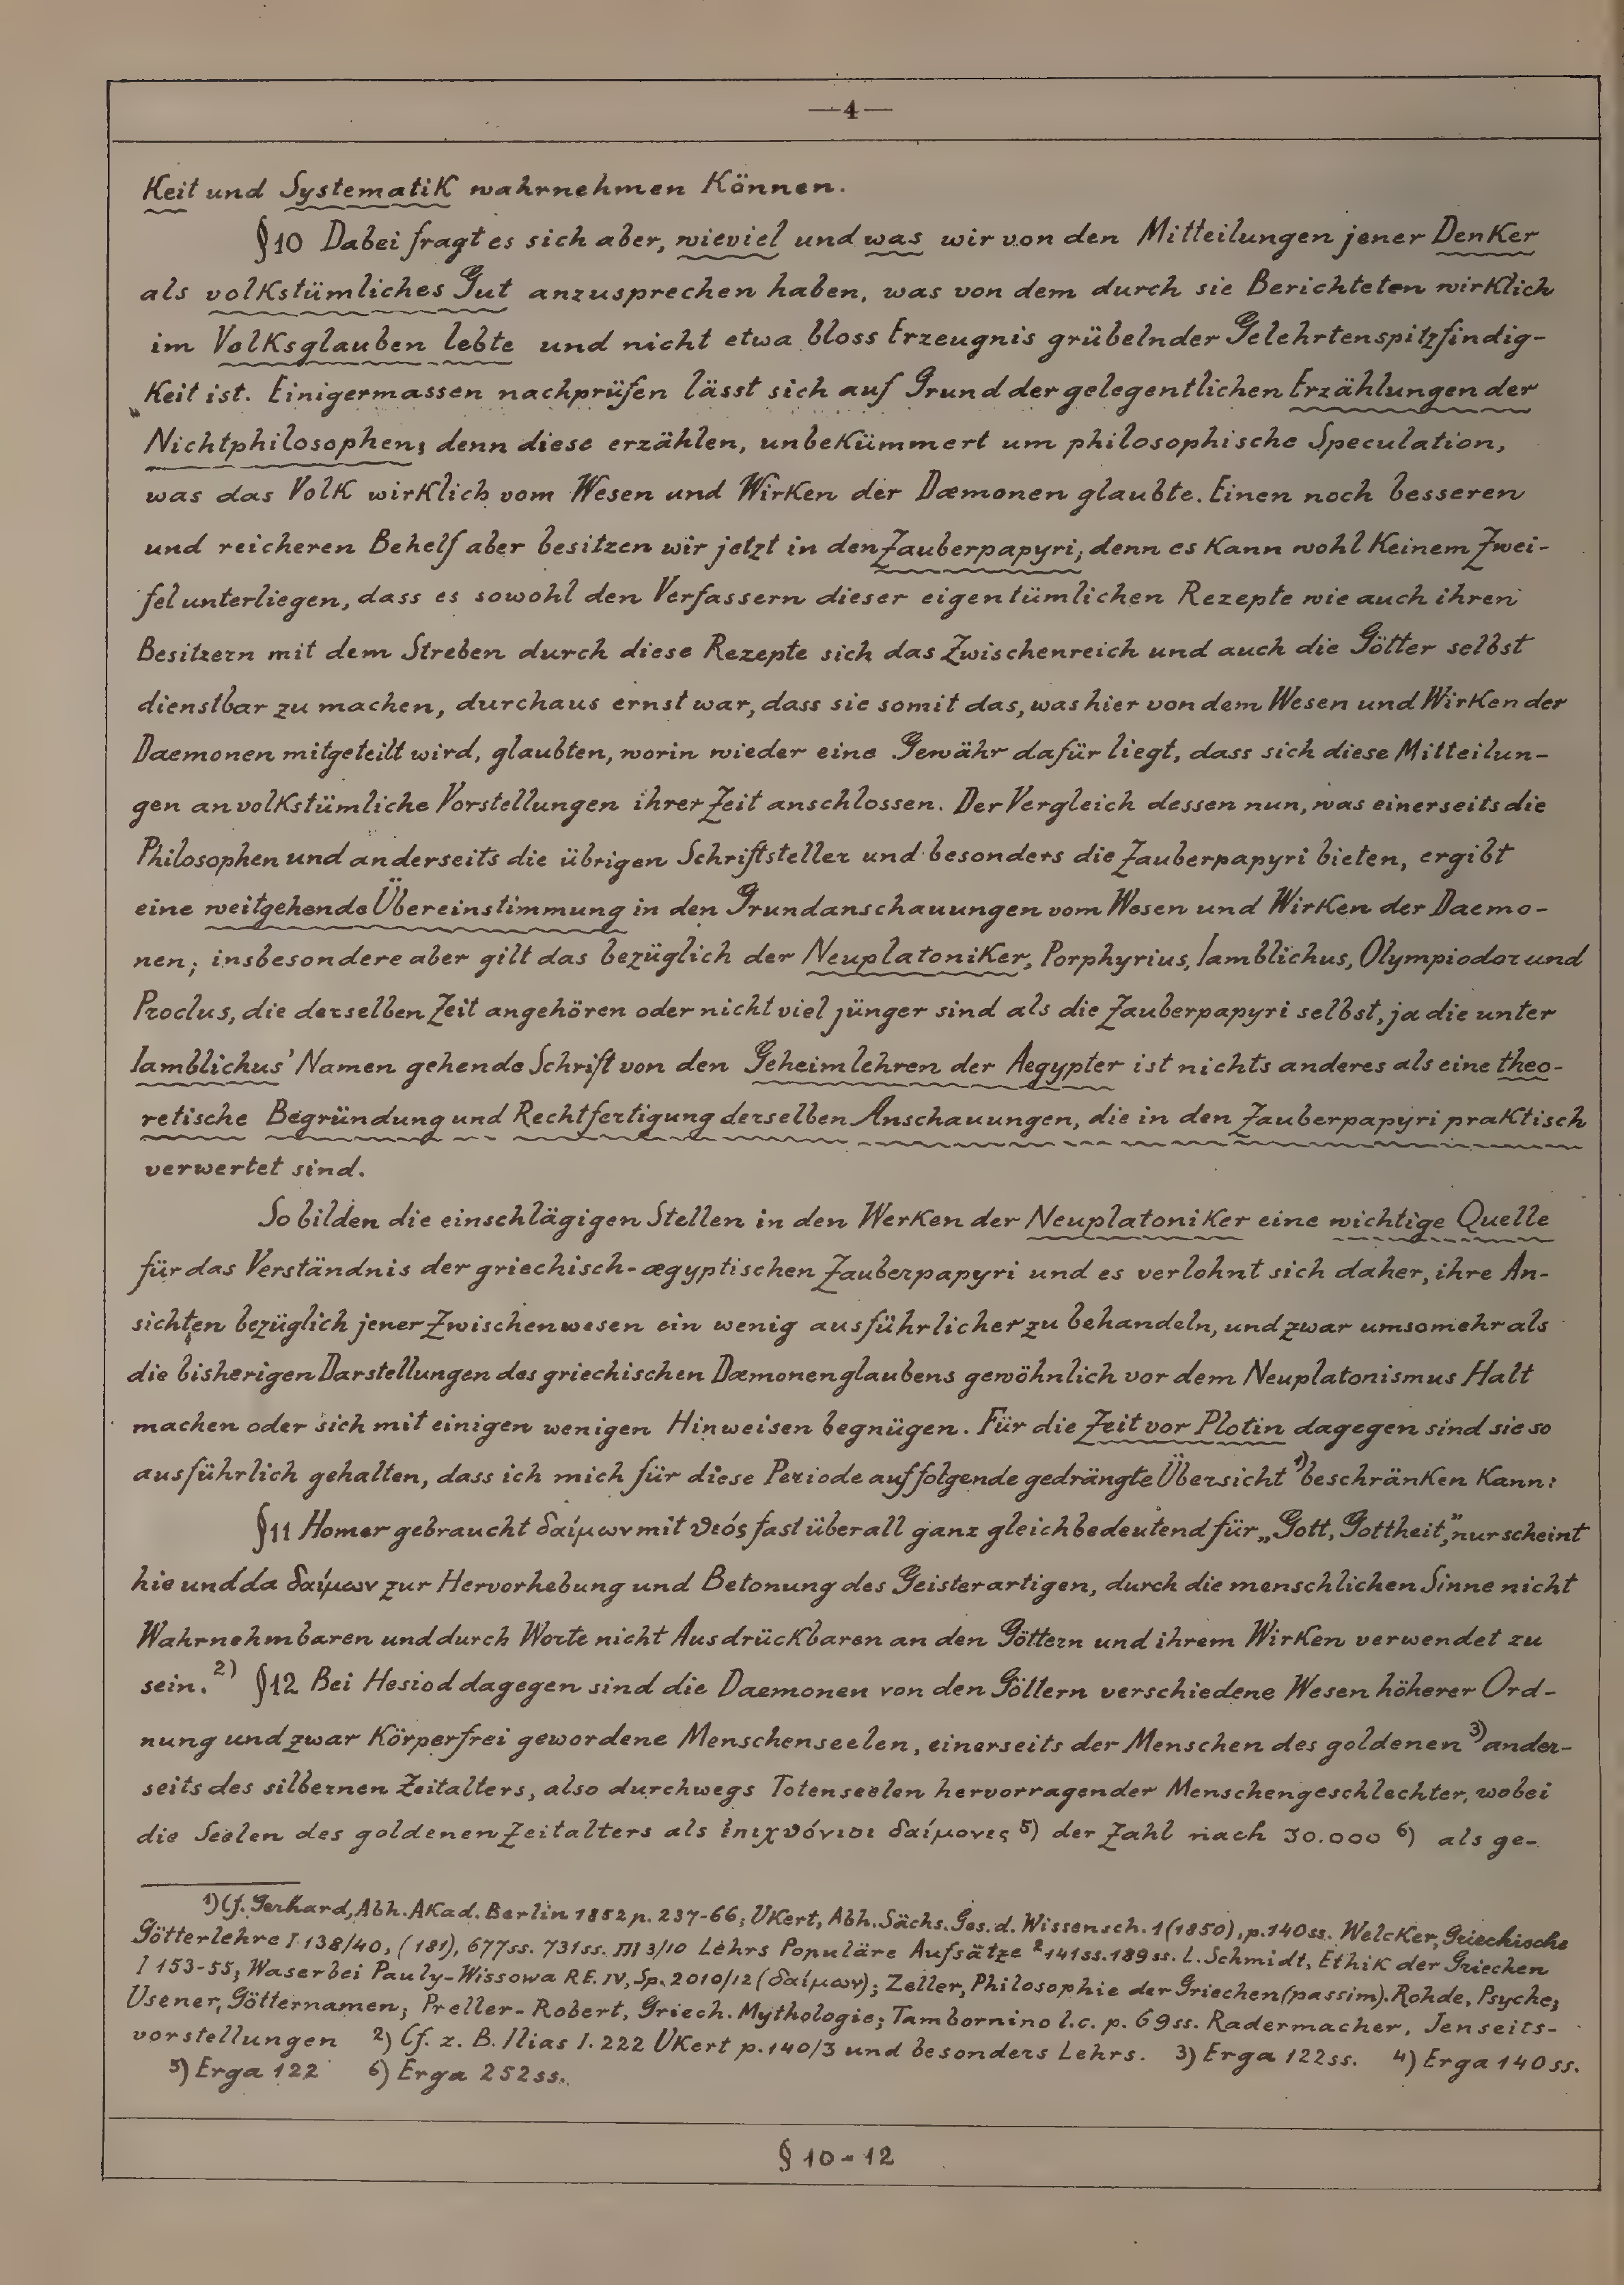 —4—
Keit und Systematik wahrnehmen können.
§10 Dabei fragt es sich aber, wieviel und was wir von den Mitteilungen jener Denker
als volkstümliches Gut anzusprechen haben, was von dem durch sie Berichteten wirklich
im Volksglauben lebte und nicht etwa bloss Erzeugnis grübelnder Gelehrtenspitzfindig-
keit ist. Einigermassen nachprüfen lässt sich auf Grund der gelegentlichen Erzählungen der
Nichtphilosophen; denn diese erzählen, unbekümmert um philosophische Speculation,
was das Volk wirklich vom Wesen und Wirken der Dæmonen glaubte. Einen noch besseren
und reicheren Behelf aber besitzen wir jetzt in den Zauberpapyri; denn es kann wohl keinem Zwei-
fel unterliegen, dass es sowohl den Verfassern dieser eigentümlichen Rezepte wie auch ihren
Besitzern mit dem Streben durch diese Rezepte sich das Zwischenreich und auch die Götter selbst
dienstbar zu machen, durchaus ernst war, dass sie somit das, was hier von dem Wesen und Wirken der
Daemonen mitgeteilt wird, glaubten, worin wieder eine Gewähr dafür liegt, dass sich diese Mitteilun-
gen an volkstümliche Vorstellungen ihrer Zeit anschlossen. Der Vergleich dessen nun, was einerseits die
Philosophen und anderseits die übrigen Schriftsteller und besonders die Zauberpapyri bieten, ergibt
eine weitgehende Übereinstimmung in den Grundanschauungen vom Wesen und Wirken der Daemo-
nen; insbesondere aber gilt das bezüglich der Neuplatoniker, Porphyrius, Iamblichus, Olympiodor und
Proclus, die derselben Zeit angehören oder nicht viel jünger sind als die Zauberpapyri selbst, ja die unter
Iamblichus' Namen gehende Schrift von den Geheimlehren der Aegypter ist nichts anderes als eine theo-
retische Begründung und Rechtfertigung derselben Anschauungen, die in den Zauberpapyri praktisch
verwertet sind.
So bilden die einschlägigen Stellen in den Werken der Neuplatoniker eine wichtige Quelle
für das Verständnis der griechisch-ægyptischen Zauberpapyri und es verlohnt sich daher, ihre An-
sichten bezüglich jener Zwischenwesen ein wenig ausführlicher zu behandeln, und zwar umsomehr als
die bisherigen Darstellungen des griechischen Dæmonenglaubens gewöhnlich vor dem Neuplatonismus Halt
machen oder sich mit einigen wenigen Hinweisen begnügen. Für die Zeit vor Plotin dagegen sind sie so
ausführlich gehalten, dass ich mich für diese Periode auf folgende gedrängte Übersicht 1) beschränken kann:
§11 Homer gebraucht δαίμων mit θεός fast überall ganz gleichbedeutend für „Gott, Gottheit", nur scheint
hie und da δαίμων zur Hervorhebung und Betonung des Geisterartigen, durch die menschlichen Sinne nicht
Wahrnehmbaren und durch Worte nicht Ausdrückbaren an den Göttern und ihrem Wirken verwendet zu
sein. 2) §12 Bei Hesiod dagegen sind die Daemonen von den Göttern verschiedene Wesen höherer Ord-
nung und zwar körperfrei gewordene Menschenseelen, einerseits der Menschen des goldenen 3) ander-
seits des silbernen Zeitalters, also durchwegs Totenseelen hervorragender Menschengeschlechter, wobei
die Seelen des goldenen Zeitalters als ἐπιχθόνιοι δαίμονες 5) der Zahl nach 30.000 6) als ge-
1) Cf. Gerhard, Abh. Akad. Berlin 1852 p. 237-66; Ukert, Abh. Sächs. Ges. d. Wissensch. 1 (1850), p. 140ss. Welcker, Griechische
Götterlehre I 138/40, (181), 677ss. 731ss. III 3/10 Lehrs Populäre Aufsätze ²141ss. 189ss. L. Schmidt, Ethik der Griechen
I 153-55; Waser bei Pauly-Wissowa RE. IV, Sp. 2010/12 (δαίμων); Zeller, Philosophie der Griechen (passim). Rohde, Psyche;
Usener, Götternamen; Preller-Robert, Griech. Mythologie; Tambornino l.c. p. 69ss. Radermacher, Jenseits-
vorstellungen 2) Cf. z. B. Ilias I. 222 Ukert p. 140/3 und besonders Lehrs. 3) Erga 122ss. 4) Erga 140ss.
5) Erga 122 6) Erga 252ss.
§ 10-12